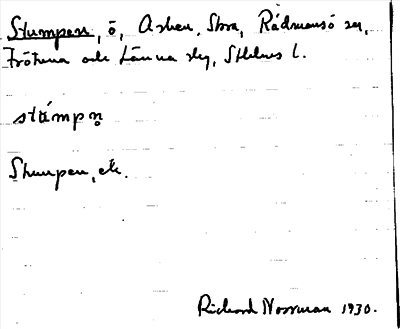 Stumpen, ö, Asken, Stora, Rådmansö sn,
Frötuna och Länna skg, Sthlms l.
stámpn̥
Stumpen, ek.
Richard Norrman 1930.